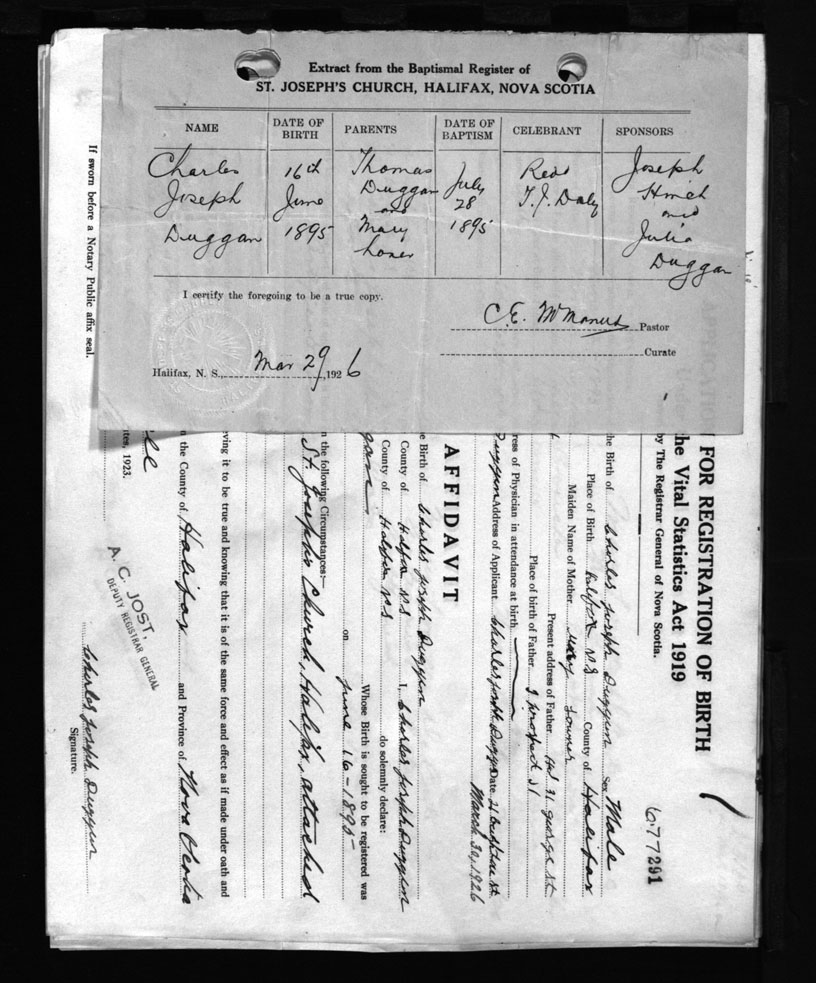 Extract from the Baptismal Register of
ST. JOSEPH'S CHURCH, HALIFAX, NOVA SCOTIA
NAME DATE OF BIRTH PARENTS DATE OF BAPTISM CELEBRANT SPONSORS
Charles 16th Thomas July Joseph
Joseph June Duggan 28 T. J. Daly
and and
Duggan 1895 Mary 1895 Julia
Duggan
I certify the foregoing to be a true copy.
C. E. McManus Pastor
Curate
Halifax, N. S., Mar 29, 1926
If sworn before a Notary Public affix seal.
FOR REGISTRATION OF BIRTH
he Vital Statistics Act 1919
by The Registrar General of Nova Scotia.
677291
he Birth of Charles Joseph Duggan Sex Male
Place of Birth Halifax N S County of Halifax
Maiden Name of Mother Mary
Present address of Father George St
Place of birth of Father
ress of Physician in attendance at birth
Duggan Address of Applicant Charles Joseph Duggan Date
March 30, 1926
AFFIDAVIT
e Birth of Charles Joseph Duggan
County of Halifax N S I, Charles Joseph Duggan
County of Halifax N S do solemnly declare:
gan Whose Birth is sought to be registered was
on June 16-1895-
n the following Circumstances:—
St. Joseph's Church, Halifax, attached
eving it to be true and knowing that it is of the same force and effect as if made under oath and
n the County of Halifax and Province of Nova Scotia
A. C. JOST,
DEPUTY REGISTRAR GENERAL
utes, 1923.
Charles Joseph Duggan
Signature.